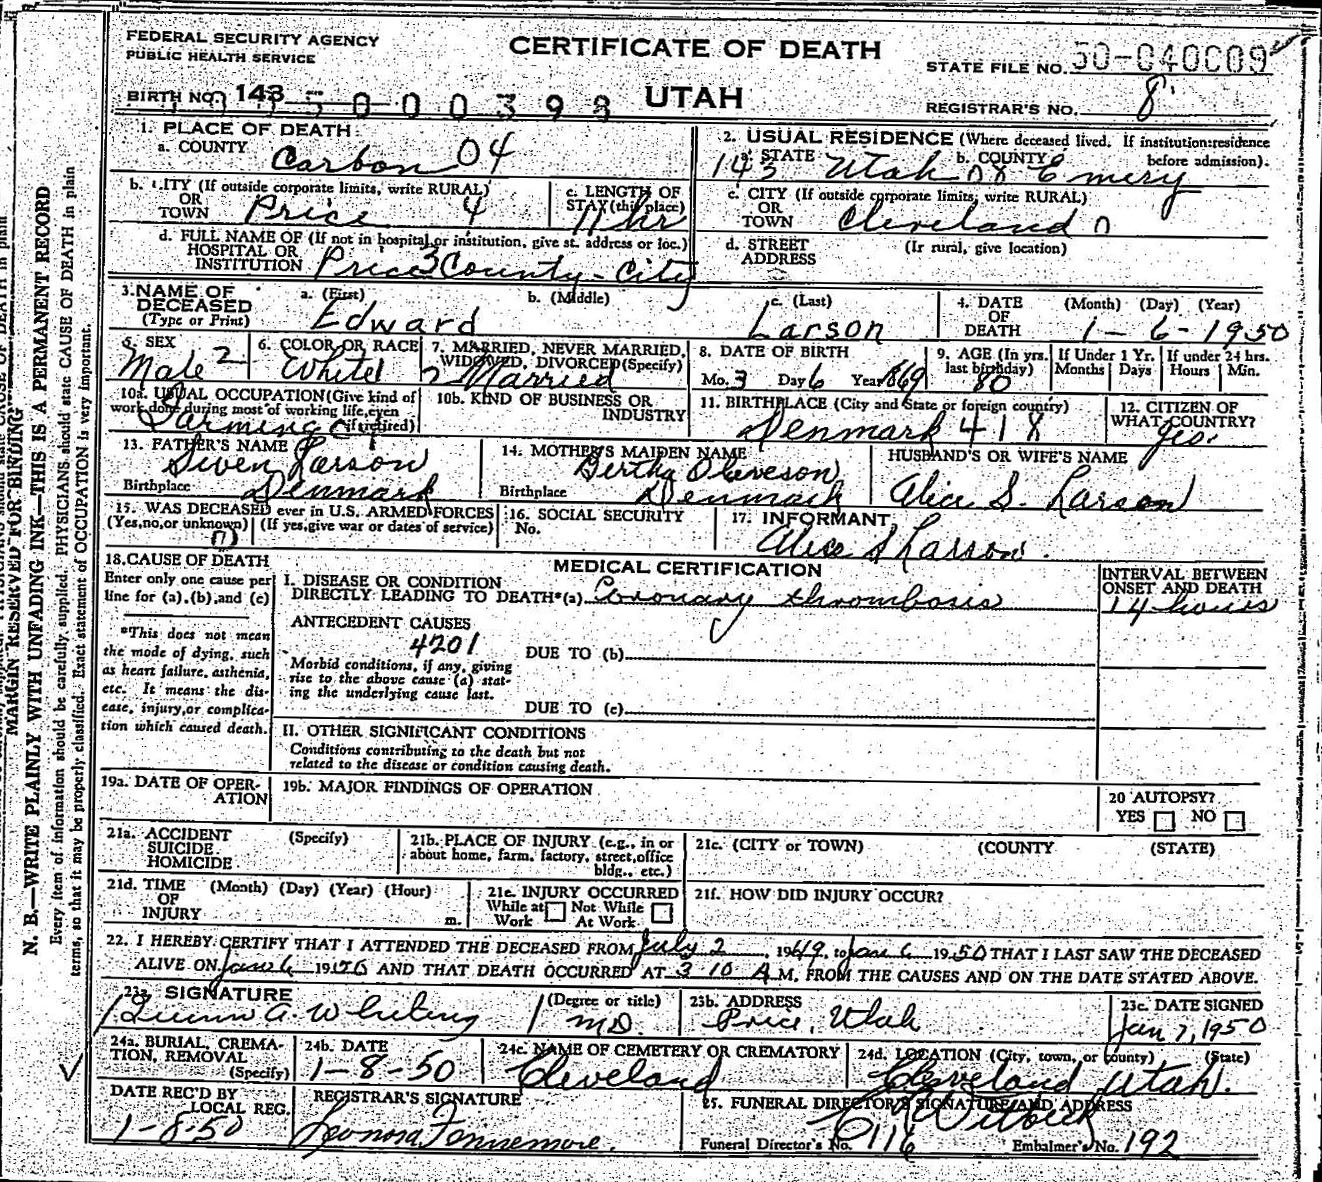 FEDERAL SECURITY AGENCY
PUBLIC HEALTH SERVICE
CERTIFICATE OF DEATH
UTAH
STATE FILE NO. 50-040009
BIRTH NO. 143
REGISTRAR'S NO. 8
1. PLACE OF DEATH
a. COUNTY Carbon 04
b. CITY (If outside corporate limits, write RURAL)
OR
TOWN Price 4
c. LENGTH OF
STAY (this place)
11 hr
d. FULL NAME OF (If not in hospital or institution, give st. address or loc.)
HOSPITAL OR
INSTITUTION Price 3 County-City
2. USUAL RESIDENCE (Where deceased lived. If institution:residence
before admission).
143 a. STATE Utah b. COUNTY 08 Emery
c. CITY (If outside corporate limits, write RURAL)
OR
TOWN Cleveland 0
d. STREET (If rural, give location)
ADDRESS
3. NAME OF
DECEASED
(Type or Print)
a. (First) b. (Middle) c. (Last)
Edward Larson
4. DATE
OF
DEATH
(Month) (Day) (Year)
1-6-1950
5. SEX
Male 2
6. COLOR OR RACE
White
7. MARRIED, NEVER MARRIED,
WIDOWED, DIVORCED (Specify)
2 Married
8. DATE OF BIRTH
Mo. 3 Day 6 Year 1869
9. AGE (In yrs.
last birthday)
80
If Under 1 Yr.
Months Days
If under 24 hrs.
Hours Min.
10a. USUAL OCCUPATION (Give kind of
work done during most of working life, even
if retired)
Farming
10b. KIND OF BUSINESS OR
INDUSTRY
11. BIRTHPLACE (City and State or foreign country)
Denmark 418
12. CITIZEN OF
WHAT COUNTRY?
yes.
13. FATHER'S NAME
Swen Larson
Birthplace Denmark
14. MOTHER'S MAIDEN NAME
Bertha Oleveson
Birthplace Denmark
HUSBAND'S OR WIFE'S NAME
Alice S. Larson
15. WAS DECEASED ever in U.S. ARMED FORCES
(Yes, no, or unknown) (If yes, give war or dates of service)
16. SOCIAL SECURITY
No.
17. INFORMANT
Alice S Larson.
18. CAUSE OF DEATH
Enter only one cause per
line for (a), (b), and (c)
*This does not mean
the mode of dying, such
as heart failure, asthenia,
etc. It means the dis-
ease, injury, or complica-
tion which caused death.
MEDICAL CERTIFICATION
I. DISEASE OR CONDITION
DIRECTLY LEADING TO DEATH*(a) Coronary thrombosis
INTERVAL BETWEEN
ONSET AND DEATH
14 hours
ANTECEDENT CAUSES
4201
DUE TO (b)
Morbid conditions, if any, giving
rise to the above cause (a) stat-
ing the underlying cause last.
DUE TO (c)
II. OTHER SIGNIFICANT CONDITIONS
Conditions contributing to the death but not
related to the disease or condition causing death.
19a. DATE OF OPER-
ATION
19b. MAJOR FINDINGS OF OPERATION
20 AUTOPSY?
YES NO
21a. ACCIDENT (Specify)
SUICIDE
HOMICIDE
21b. PLACE OF INJURY (e.g., in or
about home, farm, factory, street, office
bldg., etc.)
21c. (CITY or TOWN) (COUNTY (STATE)
21d. TIME (Month) (Day) (Year) (Hour)
OF
INJURY m.
21e. INJURY OCCURRED
While at Not While
Work At Work
21f. HOW DID INJURY OCCUR?
22. I HEREBY CERTIFY THAT I ATTENDED THE DECEASED FROM July 2, 1949, to Jan 6 1950 THAT I LAST SAW THE DECEASED
ALIVE ON Jan 6 1950 AND THAT DEATH OCCURRED AT 3 10 A M, FROM THE CAUSES AND ON THE DATE STATED ABOVE.
23a. SIGNATURE (Degree or title)
Quinn A. Whiting MD.
23b. ADDRESS
Price, Utah
23c. DATE SIGNED
Jan 7, 1950
24a. BURIAL, CREMA-
TION, REMOVAL
(Specify)
24b. DATE
1-8-50
24c. NAME OF CEMETERY OR CREMATORY
Cleveland
24d. LOCATION (City, town, or county) (State)
Cleveland Utah.
DATE REC'D BY
LOCAL REG.
1-8-50
REGISTRAR'S SIGNATURE
Leonora Fennemore.
25. FUNERAL DIRECTOR'S SIGNATURE AND ADDRESS
Funeral Director's No. 116 Embalmer's No. 192
MARGIN RESERVED FOR BINDING
N. B.—WRITE PLAINLY WITH UNFADING INK—THIS IS A PERMANENT RECORD
Every item of information should be carefully supplied. PHYSICIANS should state CAUSE OF DEATH in plain
terms, so that it may be properly classified. Exact statement of OCCUPATION is very important.